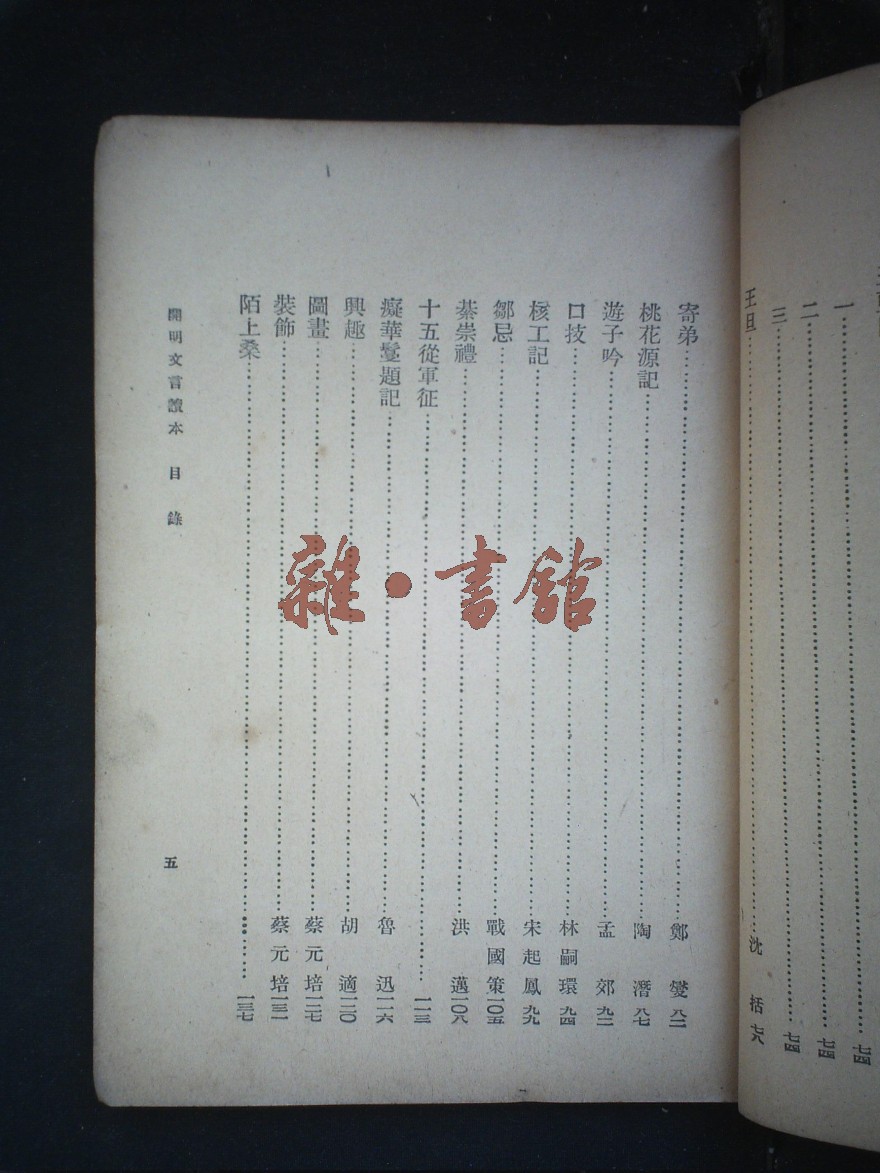 一……七四
二……七四
三……七四
王旦……沈括
寄弟……鄭燮 八二
桃花源記……陶潛 八七
遊子吟……孟郊 九二
口技……林嗣環 九四
核工記……宋起鳳 九九
鄒忌……戰國策 一〇五
綦崇禮……洪邁 一〇八
十五從軍征……一一三
癡華鬘題記……魯迅 一一六
興趣……胡適 一二〇
圖畫……蔡元培 一二七
裝飾……蔡元培 一三一
陌上桑……一三七
開明文言讀本 目錄
五
雜·書館